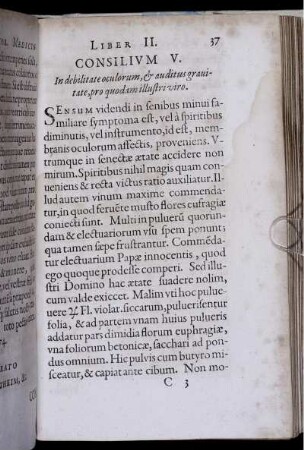 LIBER II. 37
CONSILIVM V.
In debilitate oculorum, & auditus graui-
tate, pro quodam illustri viro.
SENSVM videndi in senibus minui fa-
miliare symptoma est, vel à spiritibus
diminutis, vel instrumento, id est, mem-
branis oculorum affectis, proueniens. V-
trumque in senectæ ætate accidere non
mirum. Spiritibus nihil magis quam con-
ueniens & recta victus ratio auxiliatur. Il-
lud autem vinum maxime commenda-
tur, in quod feruēte musto flores eufragiæ
coniecti sunt. Multi in puluerū quorun-
dam & electuariorum vsu spem ponunt;
qua tamen sæpe frustrantur. Commēda-
tur electuarium Papæ innocentis, quod
ego quoque prodesse comperi. Sed illu-
stri Domino hac ætate suadere nolim,
cum valde exiccet. Malim vti hoc pul-
uere ℞ Fl. violar. siccarum, puluerisentur
folia, & ad partem vnam huius pulueris
addatur pars dimidia florum euphragiæ,
vna foliorum betonicæ, sacchari ad pon-
dus omnium. Hic puluis cum butyro mi-
sceatur, & capiat ante cibum. Non mo-
C 3